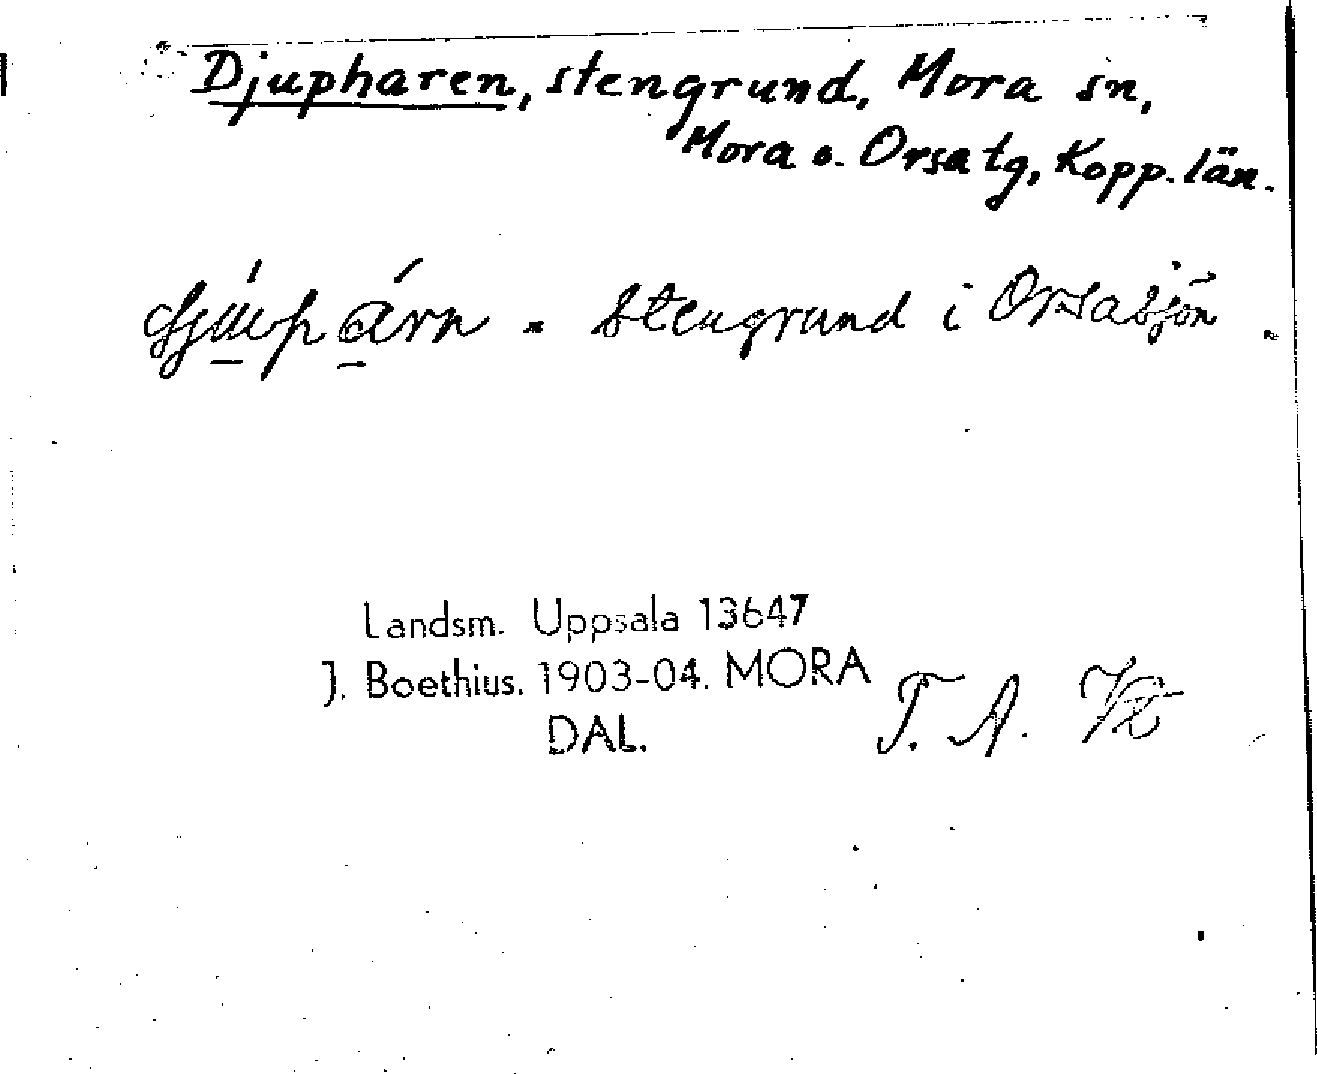 Djupharen, stengrund, Mora sn,
Mora o. Orsa tg, Kopp. län.
Stengrund i Orsasjön.
Landsm. Uppsala 13647
J. Boethius. 1903-04. MORA
DAL.
T. A.